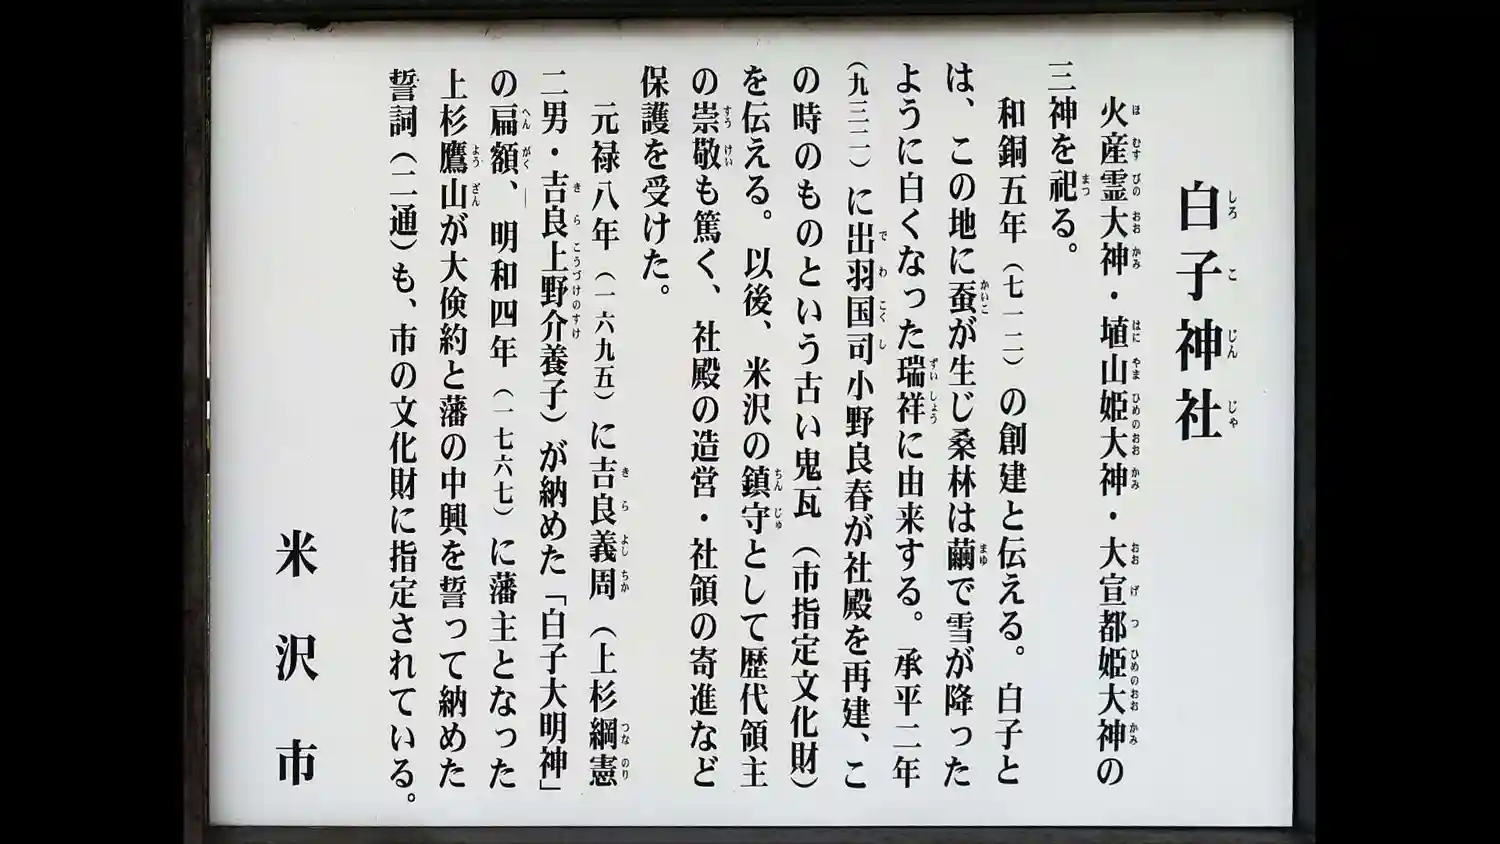 白子神社
火産霊大神・埴山姫大神・大宣都姫大神の
三神を祀る。
和銅五年（七一二）の創建と伝える。白子と
は、この地に蚕が生じ桑林は繭で雪が降った
ように白くなった瑞祥に由来する。承平二年
（九三二）に出羽国司小野良春が社殿を再建、こ
の時のものという古い鬼瓦（市指定文化財）
を伝える。以後、米沢の鎮守として歴代領主
の崇敬も篤く、社殿の造営・社領の寄進など
保護を受けた。
元禄八年（一六九五）に吉良義周（上杉綱憲
二男・吉良上野介養子）が納めた「白子大明神」
の扁額、明和四年（一七六七）に藩主となった
上杉鷹山が大倹約と藩の中興を誓って納めた
誓詞（二通）も、市の文化財に指定されている。
米沢市